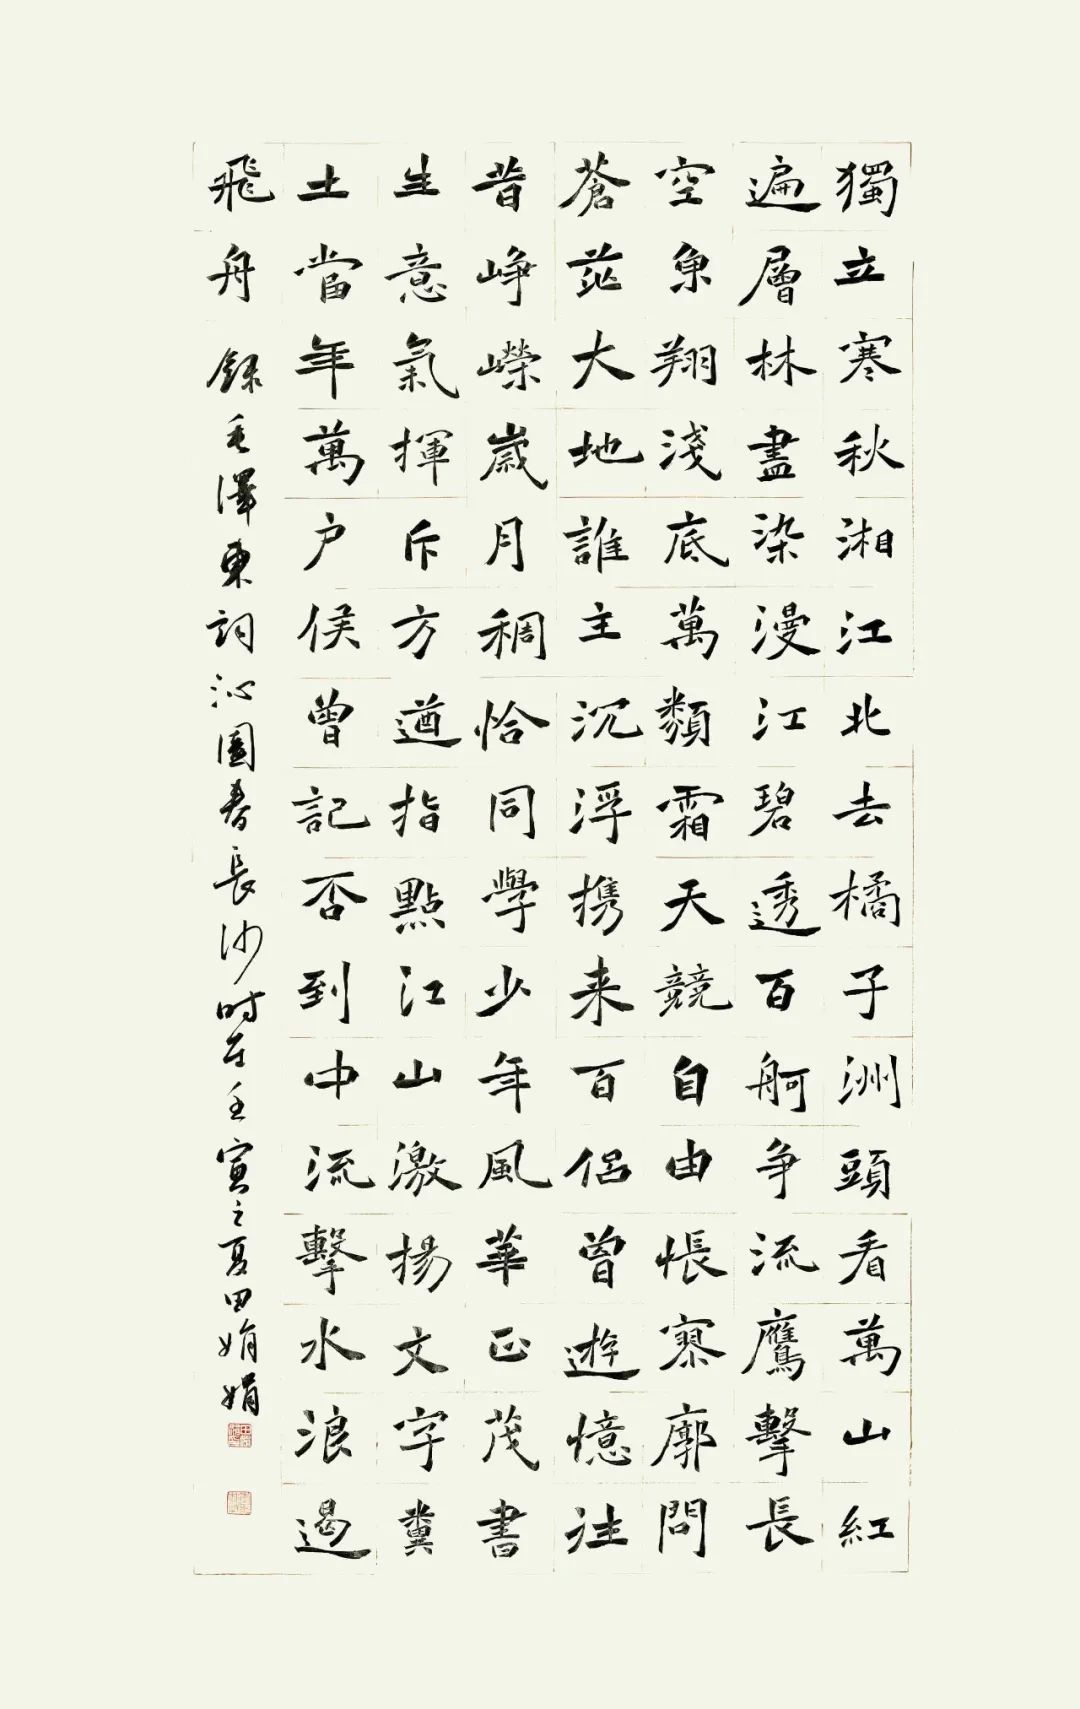 獨立寒秋湘江北去橘子洲頭看萬山紅
遍層林盡染漫江碧透百舸争流鷹擊長
空魚翔淺底萬類霜天競自由悵寥廓問
蒼茫大地誰主沉浮携来百侶曾遊憶往
昔崢嶸歲月稠恰同學少年風華正茂書
生意氣揮斥方遒指點江山激揚文字糞
土當年萬户侯曾記否到中流擊水浪遏
飛舟 録毛澤東詞沁園春長沙時在壬寅之夏田娟娟